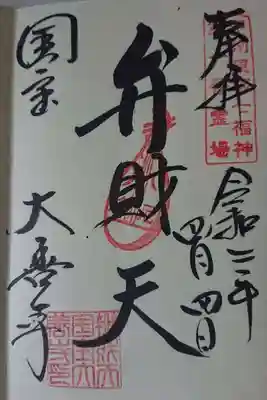 奉拝
七福神
霊場
令和二年
四月四日
弁財天
国宝
大善寺